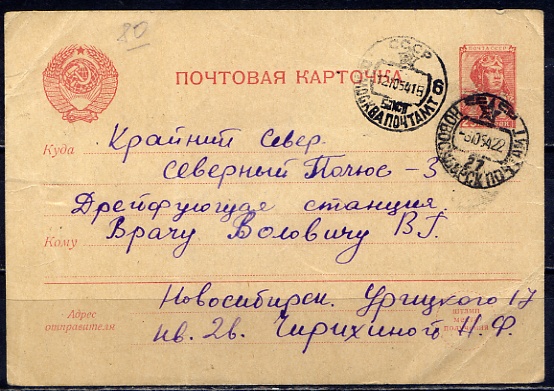 80
ПОЧТОВАЯ КАРТОЧКА
СССР
МОСКВА ПОЧТАМТ 6
НОВОСИБИРСК ПОЧТАМТ
27
Куда
Крайний Север.
Северный Полюс – 3
Дрейфующая станция.
Кому
Врачу Воловичу В.Г.
Адрес
отправителя
Новосибирск. Урицкого 17
кв. 2в. Чирихиной Н.Ф.